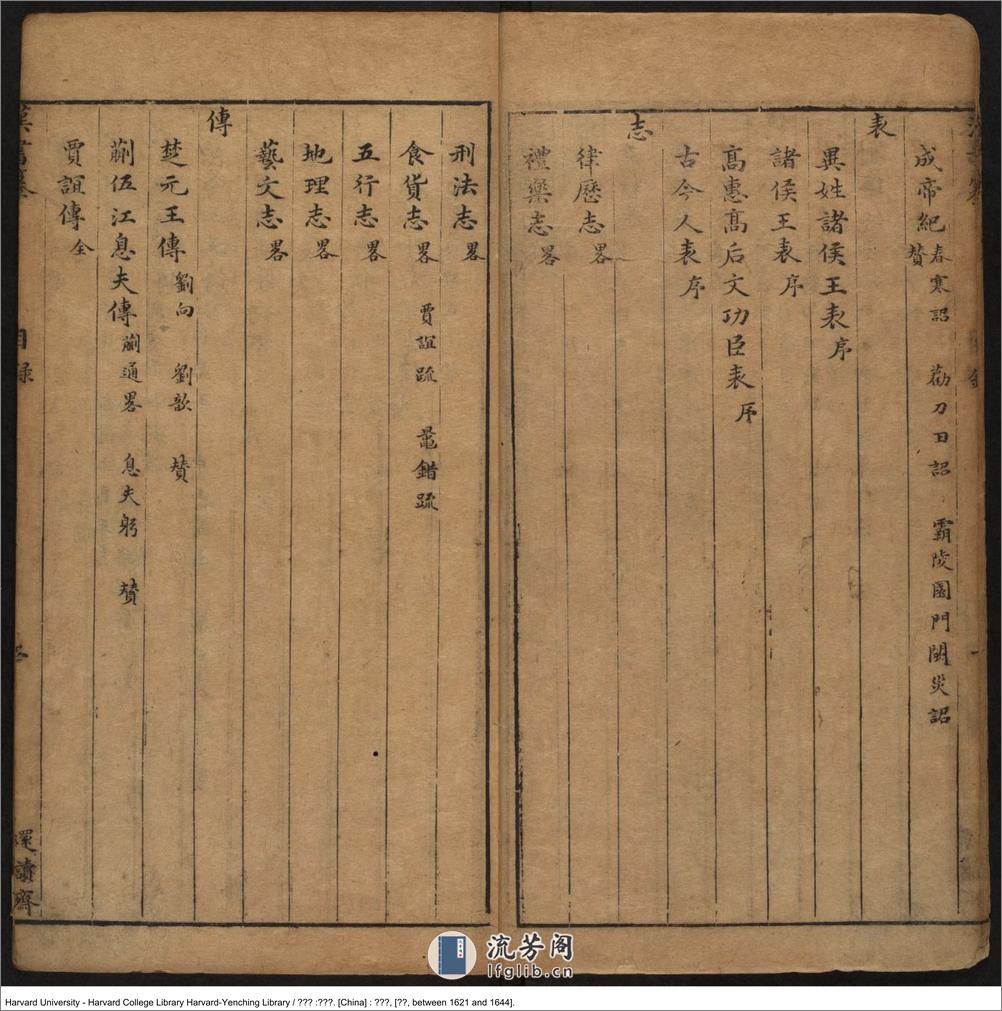 成帝紀 春寒詔 勸刀日詔 霸陵園門闕災詔 贊
表
異姓諸侯王表序
諸侯王表序
高惠高后文功臣表序
古今人表序
志
律歷志畧
禮樂志畧
刑法志畧
食貨志畧 賈誼疏 鼂錯疏
五行志畧
地理志畧
藝文志畧
傳
楚元王傳 劉向 劉歆 贊
蒯伍江息夫傳 蒯通畧 息夫躬 贊
賈誼傳全
目錄
還讀齋
流芳阁
lfglib.cn
Harvard University - Harvard College Library Harvard-Yenching Library / ??? :???. [China] : ???, [??, between 1621 and 1644].